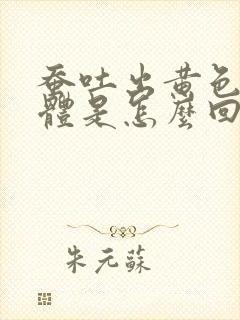 蚕吐出黄色
體是怎麼回
朱元蘇